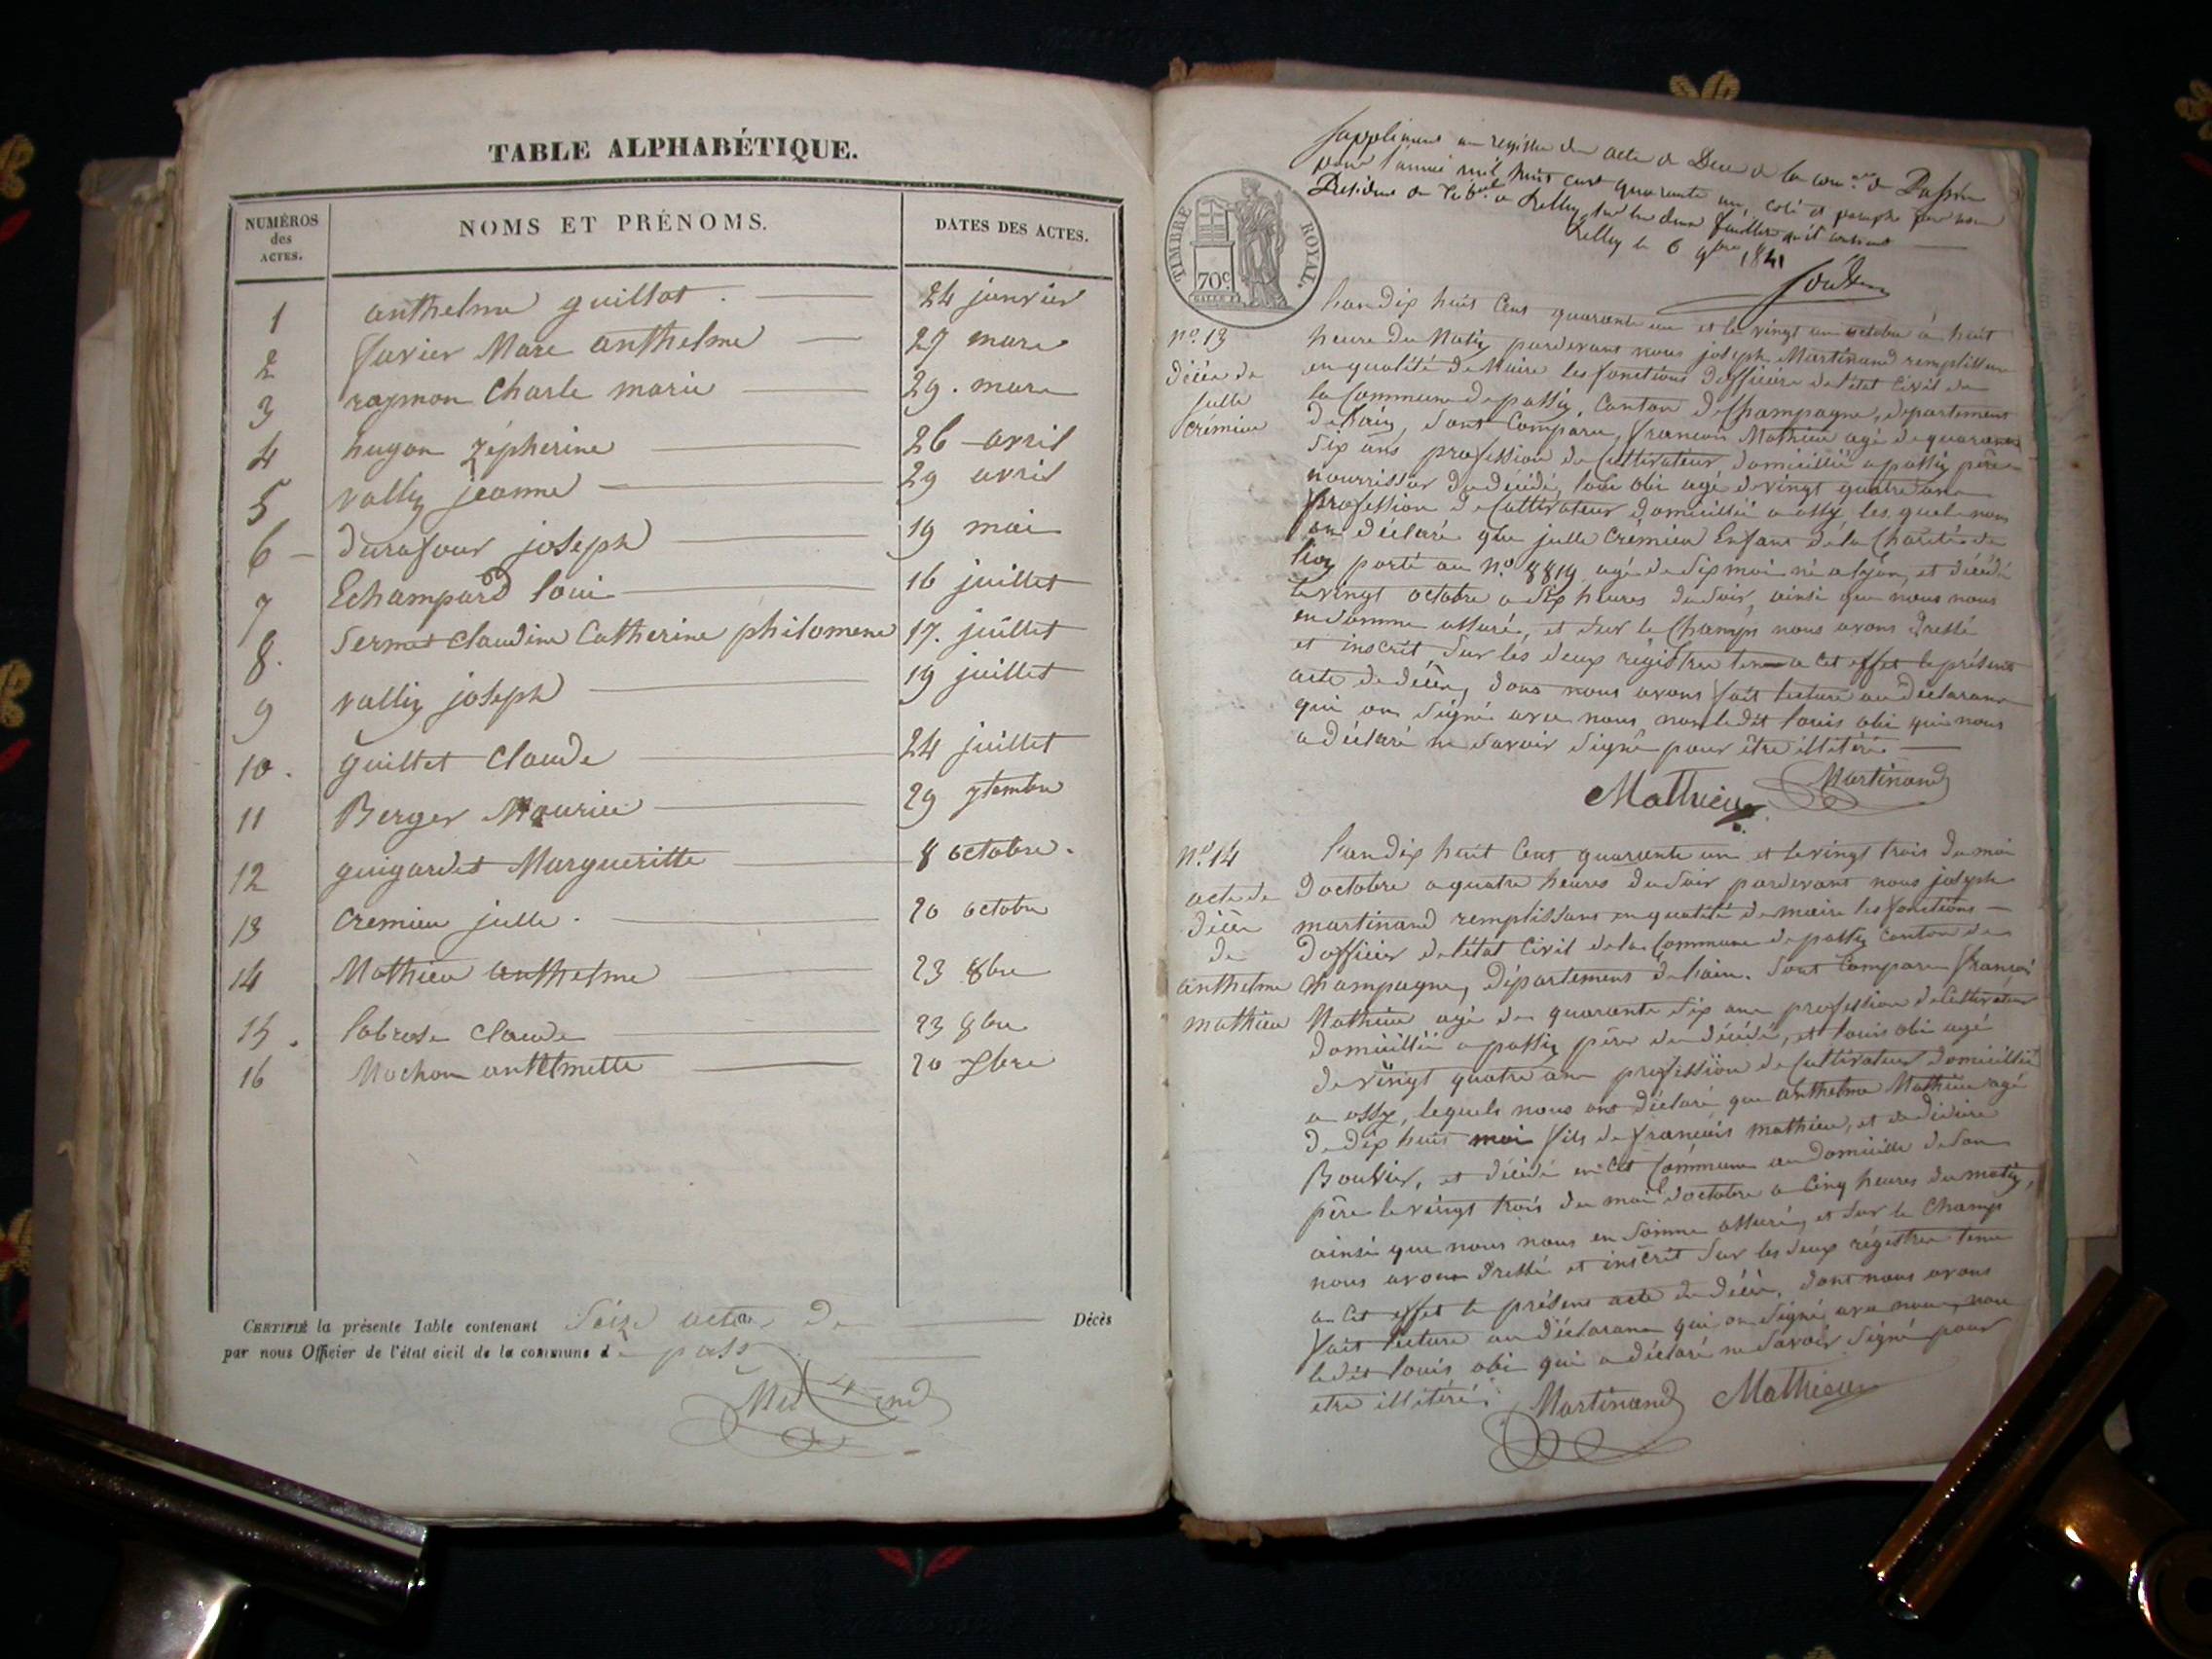 TABLE ALPHABÉTIQUE.
NUMÉROS des ACTES.
NOMS ET PRÉNOMS.
DATES DES ACTES.
1 anthelme guillot . 24 janvier
2 favier Marc anthelme 27 mars
3 raymon Charle marie 29 . mars
4 hugon zépherine 26 avril
5 vallin jeanne 29 avril
6 durafour joseph 19 mai
7 Echampard loui 16 juillet
8. Sermet claudine Catherine philomene 17. juillet
9 vallin joseph 19 juillet
10. guillet Claude 24 juillet
11 Berger Maurice 29 7tembre
12 guigardet Margueritte 8 octobre .
13 cremieu julle . 20 octobre
14 Mathieu anthelme 23 8bre
15 . labrosse Claude 23 8bre
16 Mochon anthelmette 20 9bre
CERTIFIÉ la présente Table contenant Seize actes de Décès
par nous Officier de l'état civil de la commune de
TIMBRE ROYAL.
70c
Supplément au registre des actes de Décès de la comune de Passin
pour l'année mil huit cent quarante un, coté et paraphé par nous
Président du Tribal de Belley, sur les deux feuilles qu'il contient
Belley le 6 9bre 1841
no. 13
décès de
julle
crémieu
lan dix huit Cent quarante un et le vingt un octobre à huit
heure du Matin pardevant nous joseph Martinand remplissan
en qualité de Maire les fonctions dofficiére de létat Civil de
la Commune de passin, Canton de Champagne, département
de Lain, sont Comparu, francois Mathieu agé de quarante
six ans profession de Cultivateur domicillié a passin père
nourrissier du décédé, loui obi agé de vingt quatre ans
profession de Cultivateur domicillié a ossy les quels nous
on déclaré que julle Crémieu Enfant de la Charité de
lion porté au No. 8819 agé de six moi né a lyon, et décédé
le vingt octobre a six heures du soir, ainsi que nous nous
en somme assuré, et sur le Champs nous avons dressé
et inscrit sur les deux régistres tenu a cet effet le présent
acte de décès, dont nous avons fait lecture au déclarans
qui on signé avec nous, non ledit louis obi qui nous
a déclaré ne savoir signé pour être illitéré
Mathieu Martinand
no. 14
acte de
décès
de
anthelme
mathieu
Lan dix huit Cent quarante un et le vingt trois du moi
doctobre a quatre heures du soir pardevant nous joseph
martinand remplissant en qualité de maire les fonctions
dofficier de létat Civil de la Commune de passin canton de
Champagne, département de lain. sont Comparu françoi
Mathieu agé de quarante six ans profession de Cultivateur
domicillié a passin père du décédé, et louis obi agé
de vingt quatre ans profession de Cultivateur domicillié
a ossy, lequels nous ont déclaré que anthelme Mathieu agé
de dix huit moi fils de francois mathieu, et de
Bouvier, et décédé en cet Commune au domicille de son
père le vingt trois du moi doctobre a Cinq heures du matin,
ainsi que nous nous en somme assuré, et sur le Champs
nous avons dressé et inscrit sur les deux régistres tenu
a cet effet le présent acte de décès, dont nous avons
fait lecture au déclarans qui on signé avec nous, non
ledit louis obi qui a déclaré ne savoir signé pour
etre illitéré. Martinand Mathieu